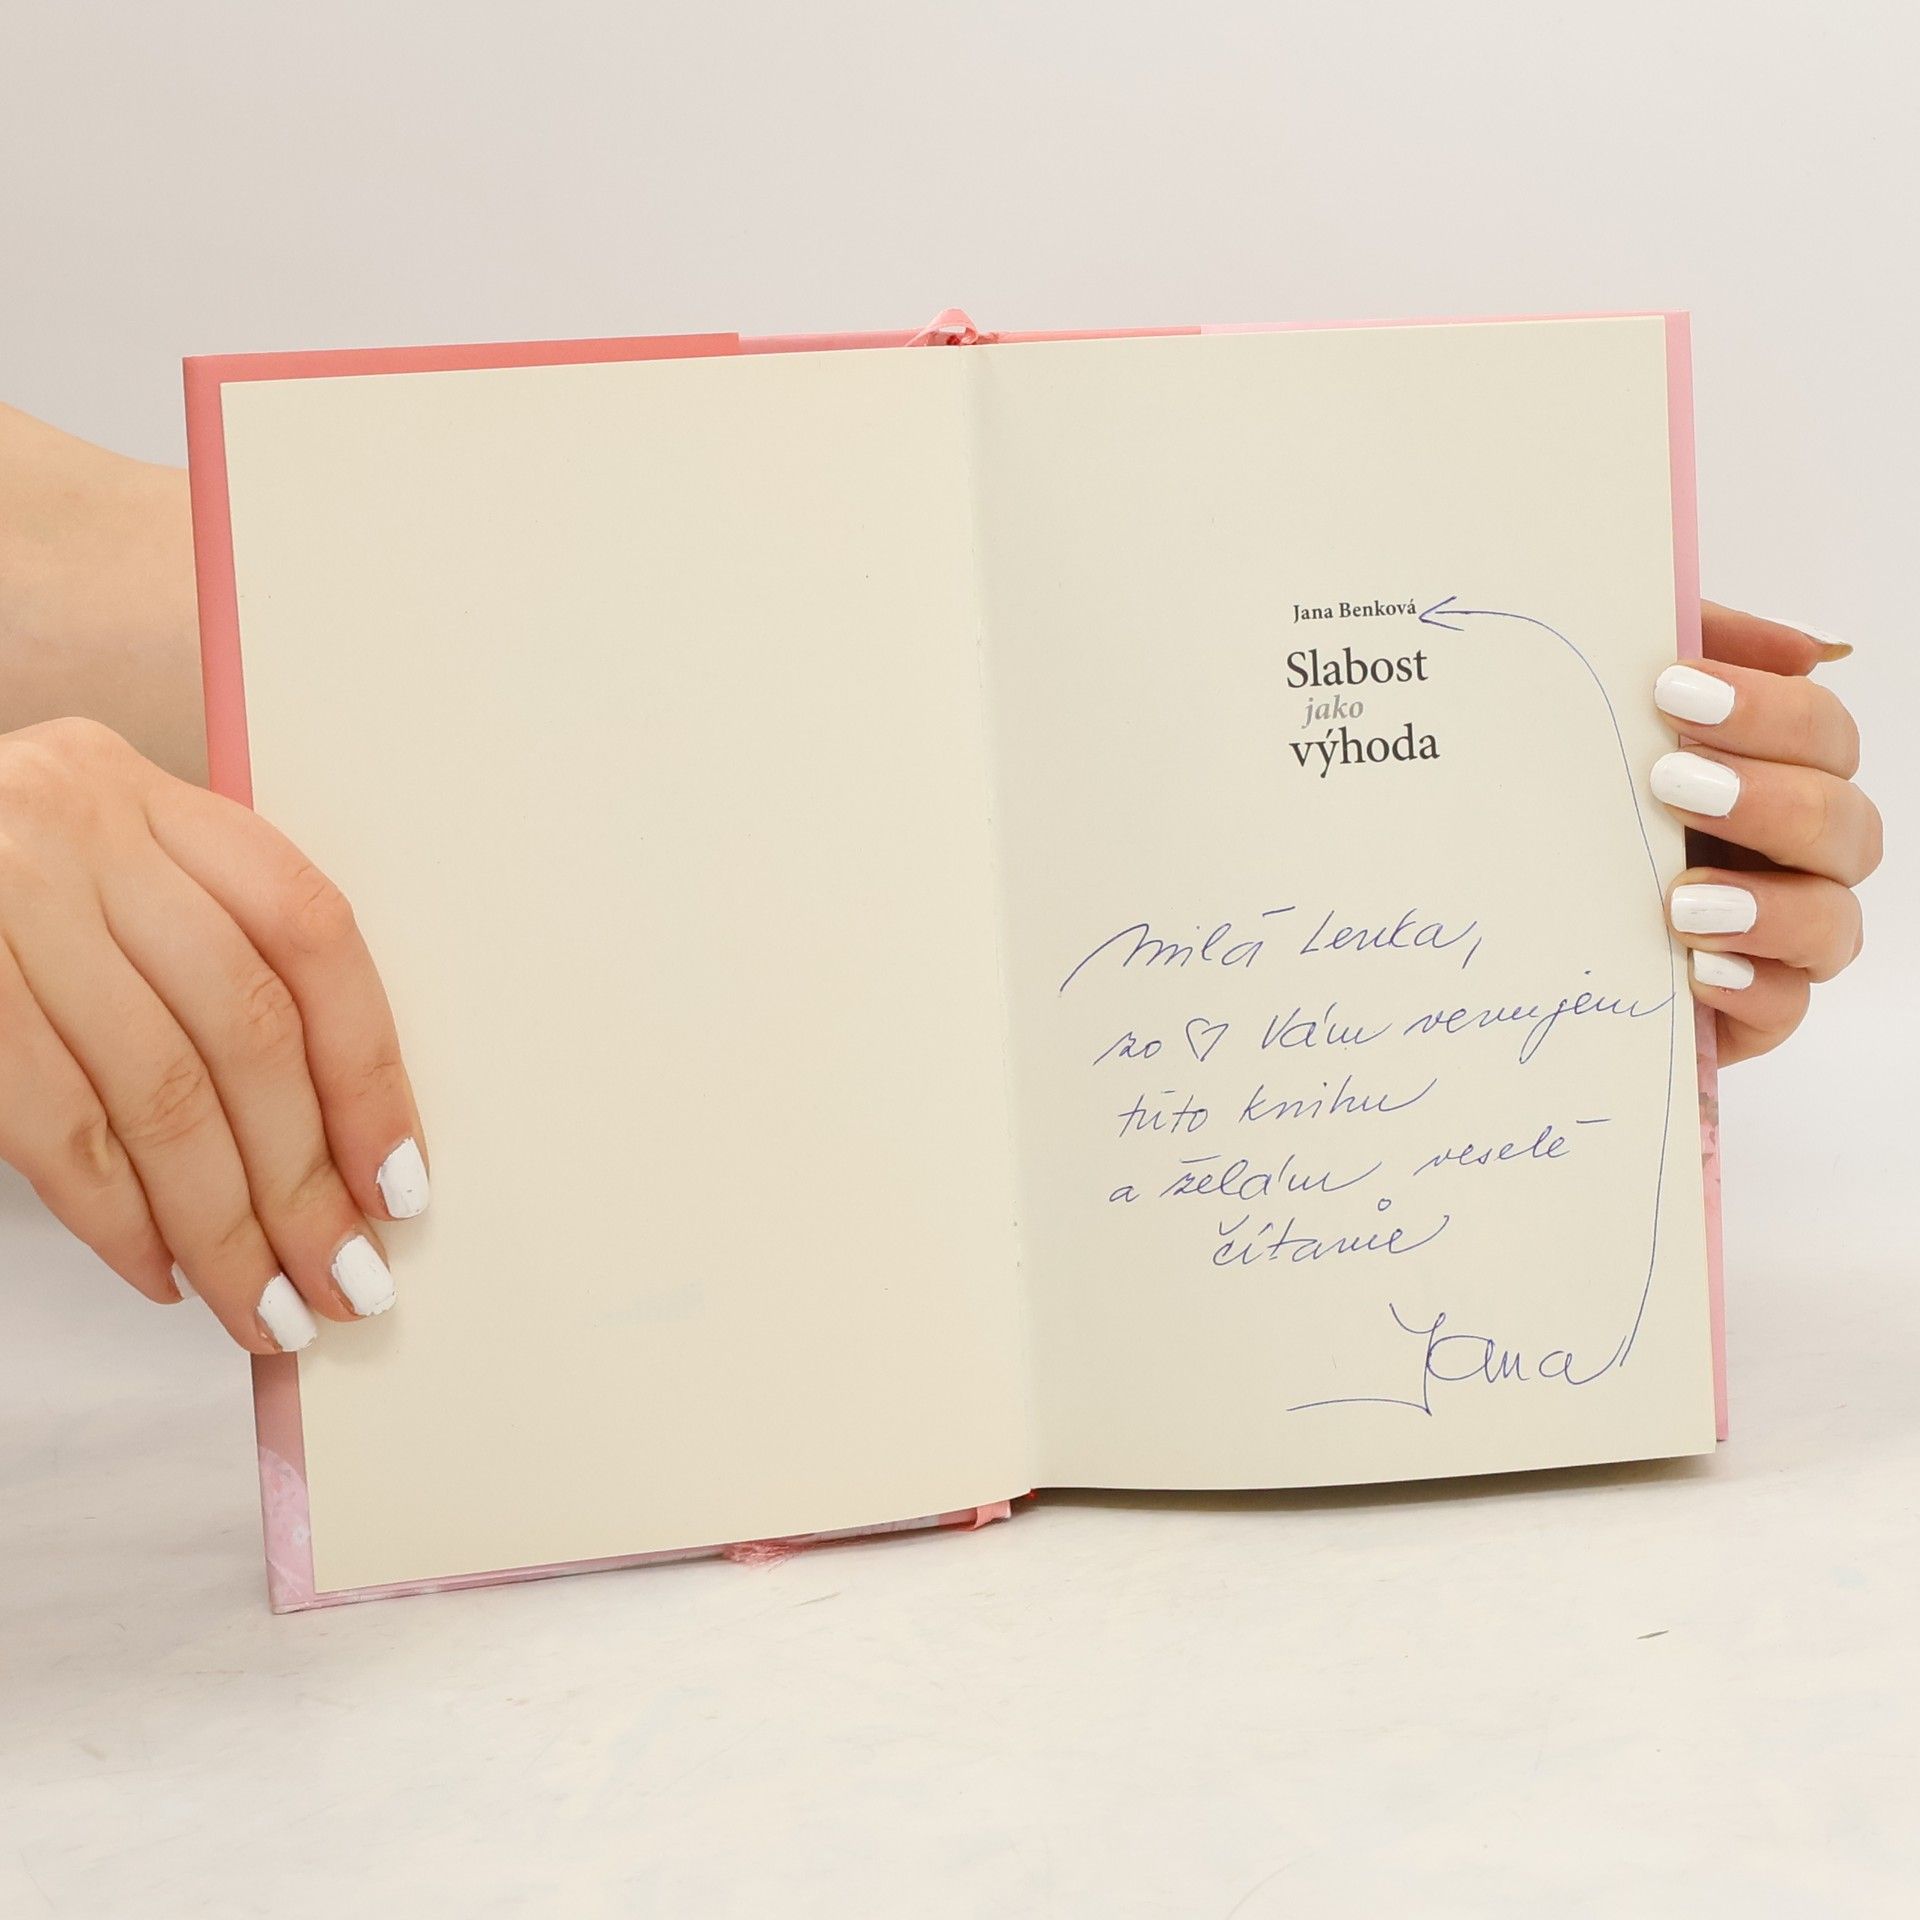 Jana Benková
Slabost
jako
výhoda
Milá Lenka,
zo ♡ Vám venujem
túto knihu
a želám veselé
čítanie
Jana